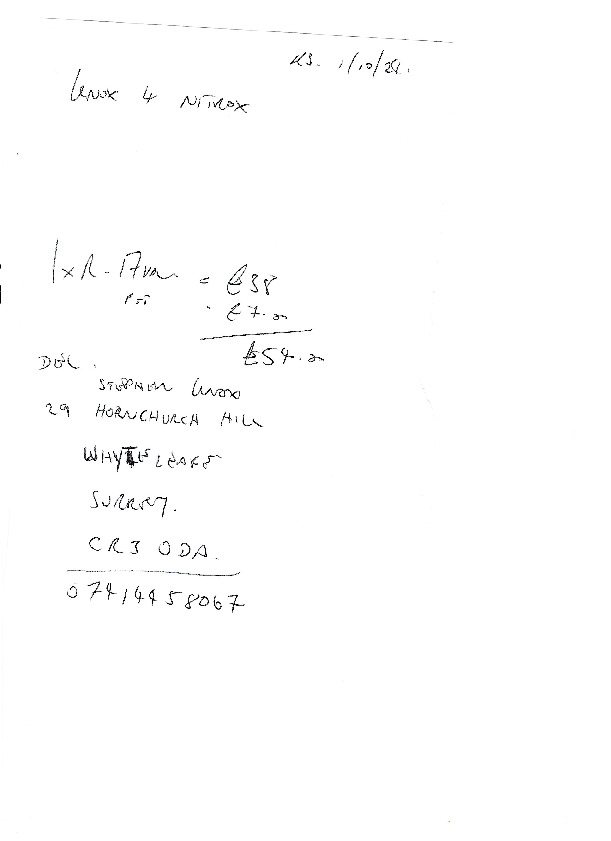 KS. 1/10/24.
Knox 4 NITROX
1 x R-17
= £38
£7.00
£54.00
DEL.
STEPHEN KNOX
29 HORNCHURCH HILL
WHYTELEAFE
SURREY.
CR3 0DA.
07414458067